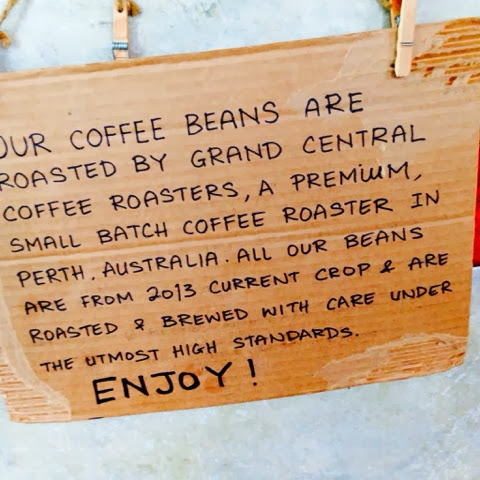 OUR COFFEE BEANS ARE
ROASTED BY GRAND CENTRAL
COFFEE ROASTERS, A PREMIUM,
SMALL BATCH COFFEE ROASTER IN
PERTH, AUSTRALIA. ALL OUR BEANS
ARE FROM 2013 CURRENT CROP & ARE
ROASTED & BREWED WITH CARE UNDER
THE UTMOST HIGH STANDARDS.
ENJOY!